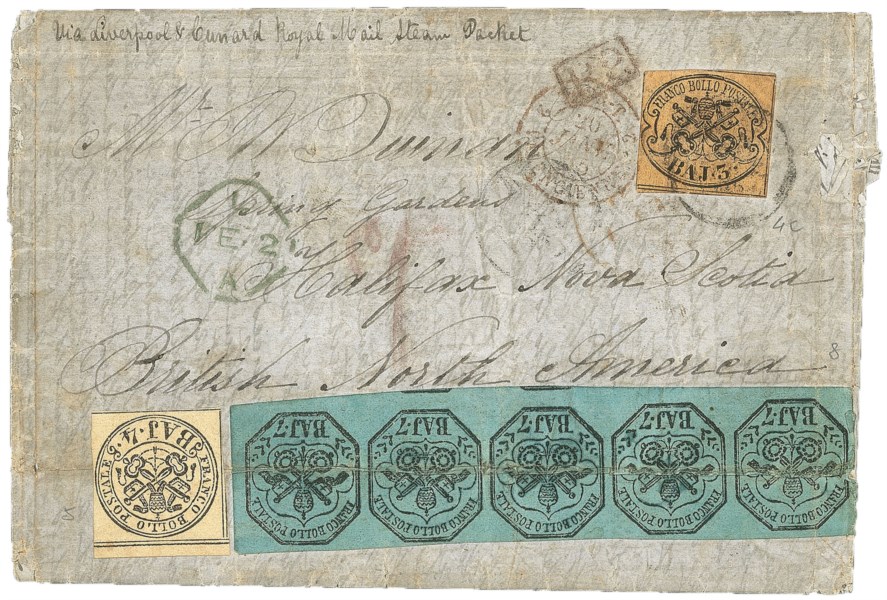 Via Liverpool & Cunard Royal Mail Steam Packet
FRANCO BOLLO POSTALE
BAJ. 3.
Spring Gardens
Halifax Nova Scotia
British North America
4c
8
BAJ. 4.
FRANCO BOLLO POSTALE
BAJ. 7
FRANCO BOLLO POSTALE
BAJ. 7
FRANCO BOLLO POSTALE
BAJ. 7
FRANCO BOLLO POSTALE
BAJ. 7
FRANCO BOLLO POSTALE
BAJ. 7
FRANCO BOLLO POSTALE